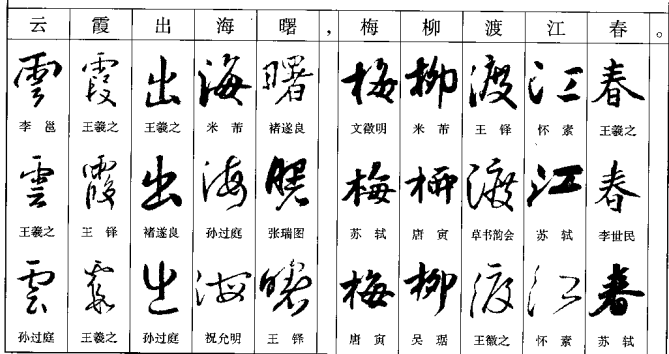 云霞出海曙，梅柳渡江春。
雲霞出海曙梅柳渡江春
李邕 王羲之 王羲之 米芾 褚遂良 文徵明 米芾 王铎 怀素 王羲之
雲霞出海曙梅柳渡江春
王羲之 王铎 褚遂良 孙过庭 张瑞图 苏轼 唐寅 草书韵会 苏轼 李世民
雲霞出海曙梅柳渡江春
孙过庭 王羲之 孙过庭 祝允明 王铎 唐寅 吴琚 王徽之 怀素 苏轼